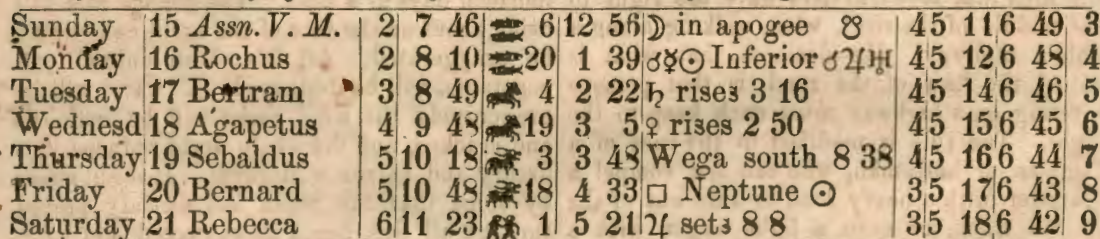 Sunday 15 Assn. V. M. 2 7 46 6 12 56 ☽ in apogee ☋ 4 5 11 6 49 3
Monday 16 Rochus 2 8 10 20 1 39 ☌☿☉ Inferior ☌♃♅ 4 5 12 6 48 4
Tuesday 17 Bertram 3 8 49 4 2 22 ♄ rises 3 16 4 5 14 6 46 5
Wednesd 18 Agapetus 4 9 48 19 3 5 ♀ rises 2 50 4 5 15 6 45 6
Thursday 19 Sebaldus 5 10 18 3 3 48 Wega south 8 38 4 5 16 6 44 7
Friday 20 Bernard 5 10 48 18 4 33 □ Neptune ☉ 3 5 17 6 43 8
Saturday 21 Rebecca 6 11 23 1 5 21 ♃ sets 8 8 3 5 18 6 42 9